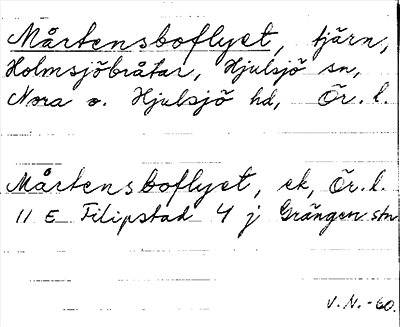 Mårtensboflyet, tjärn,
Holmsjöbråtar, Hjulsjö sn,
Nora o. Hjulsjö hd, Ör. l.
Mårtensboflyet, ek, Ör. l.
11 E Filipstad 4 j Grängen stn
V. N. -60.